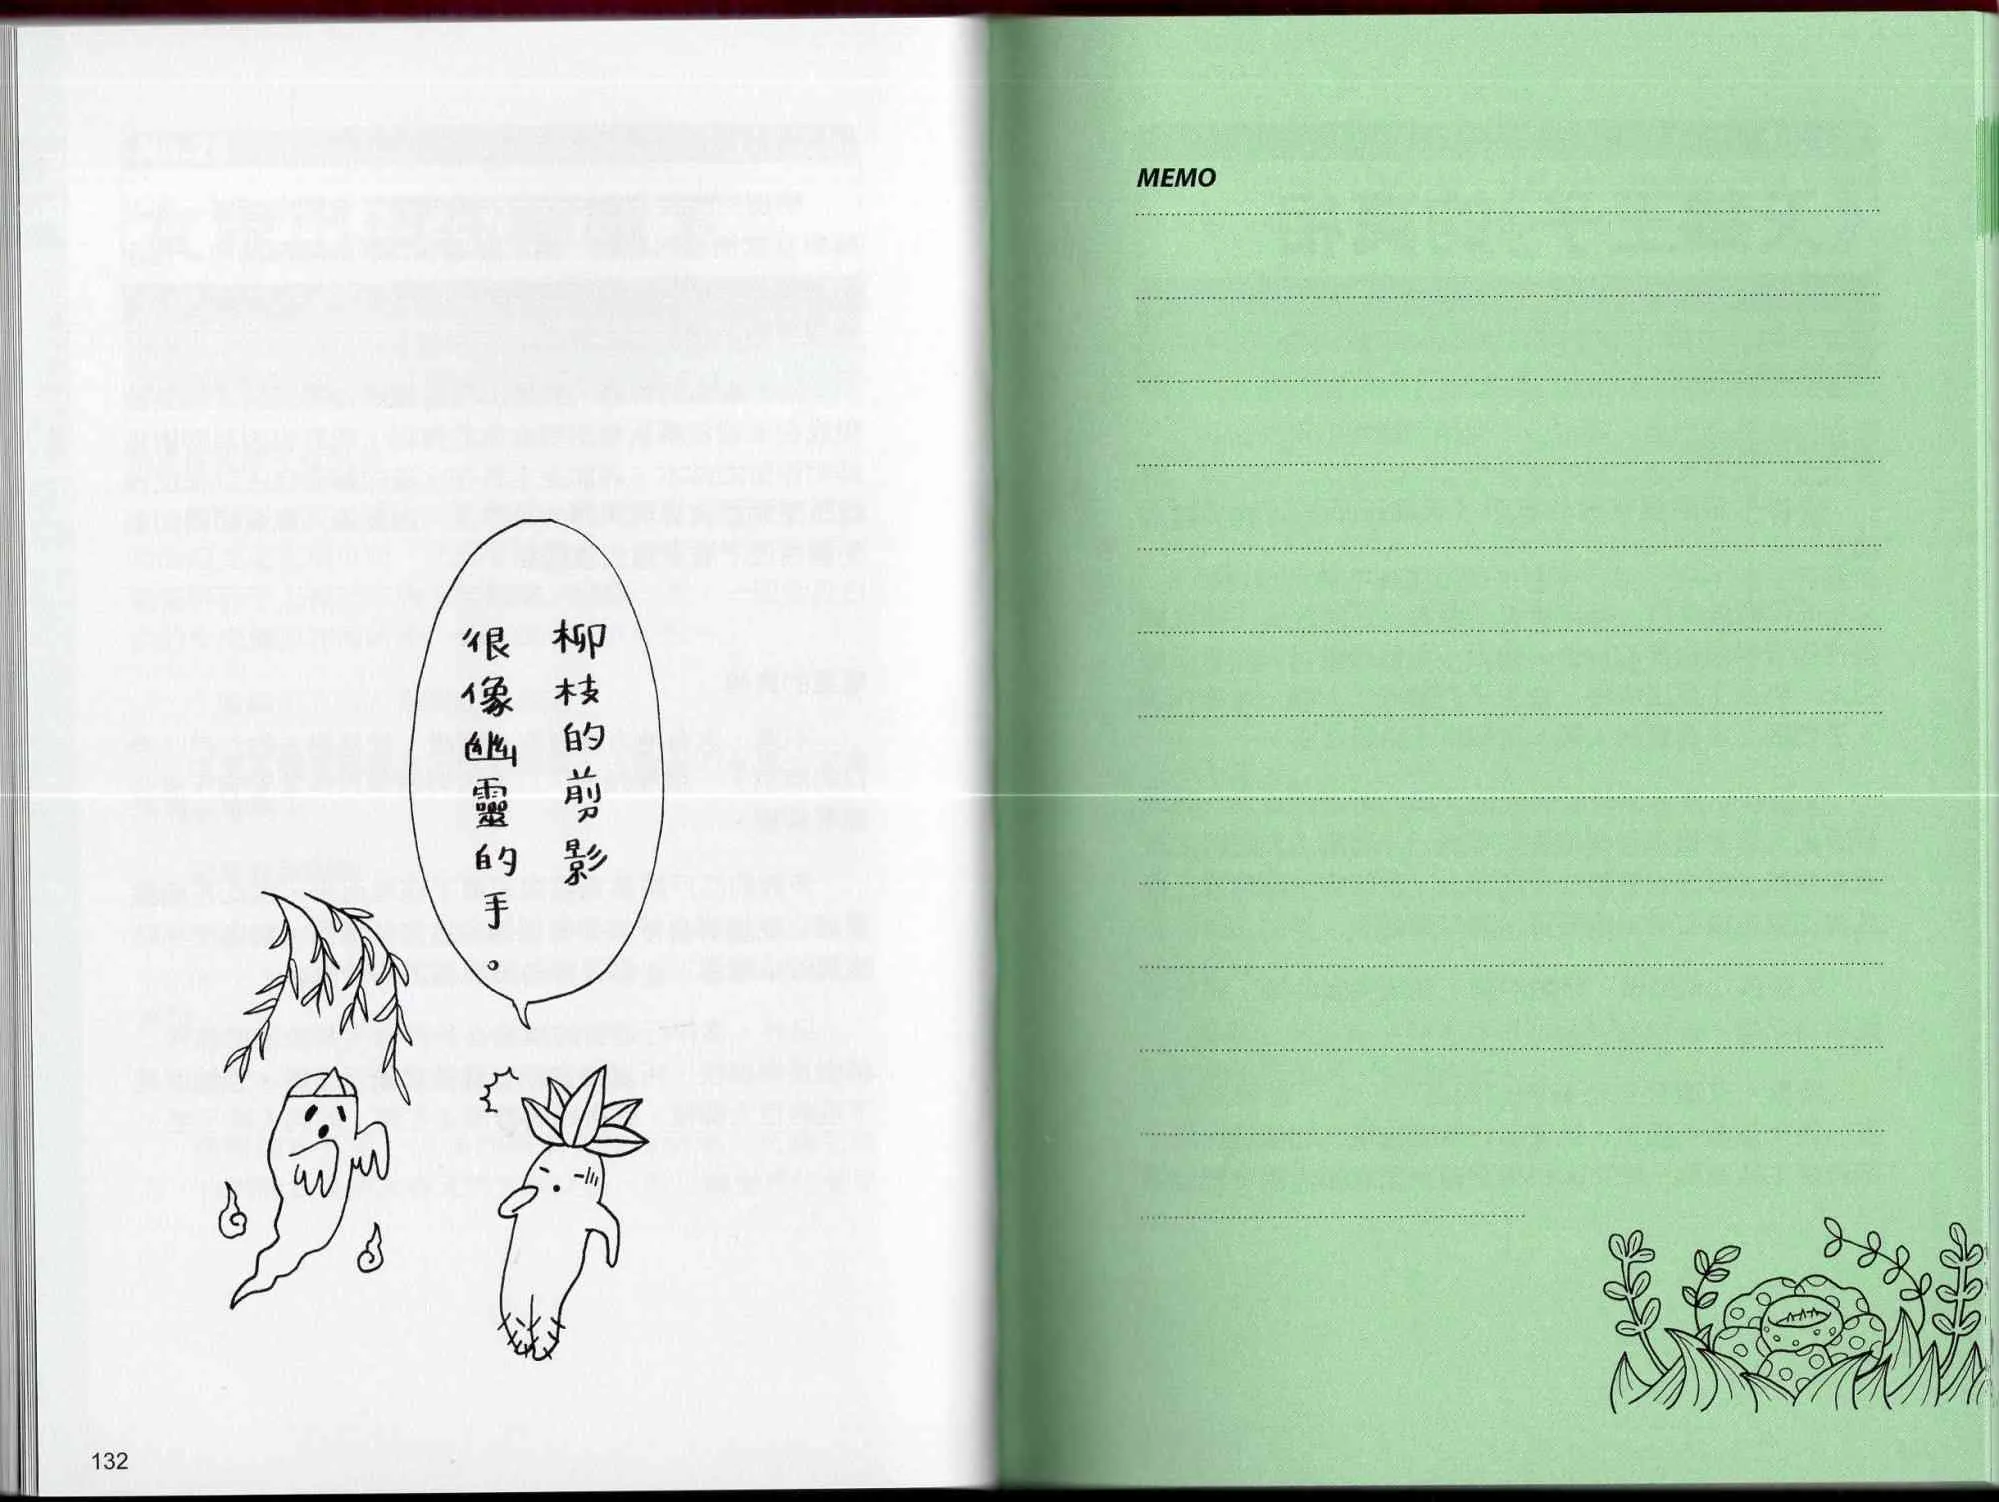 柳枝的剪影
很像幽靈的手。
132
MEMO